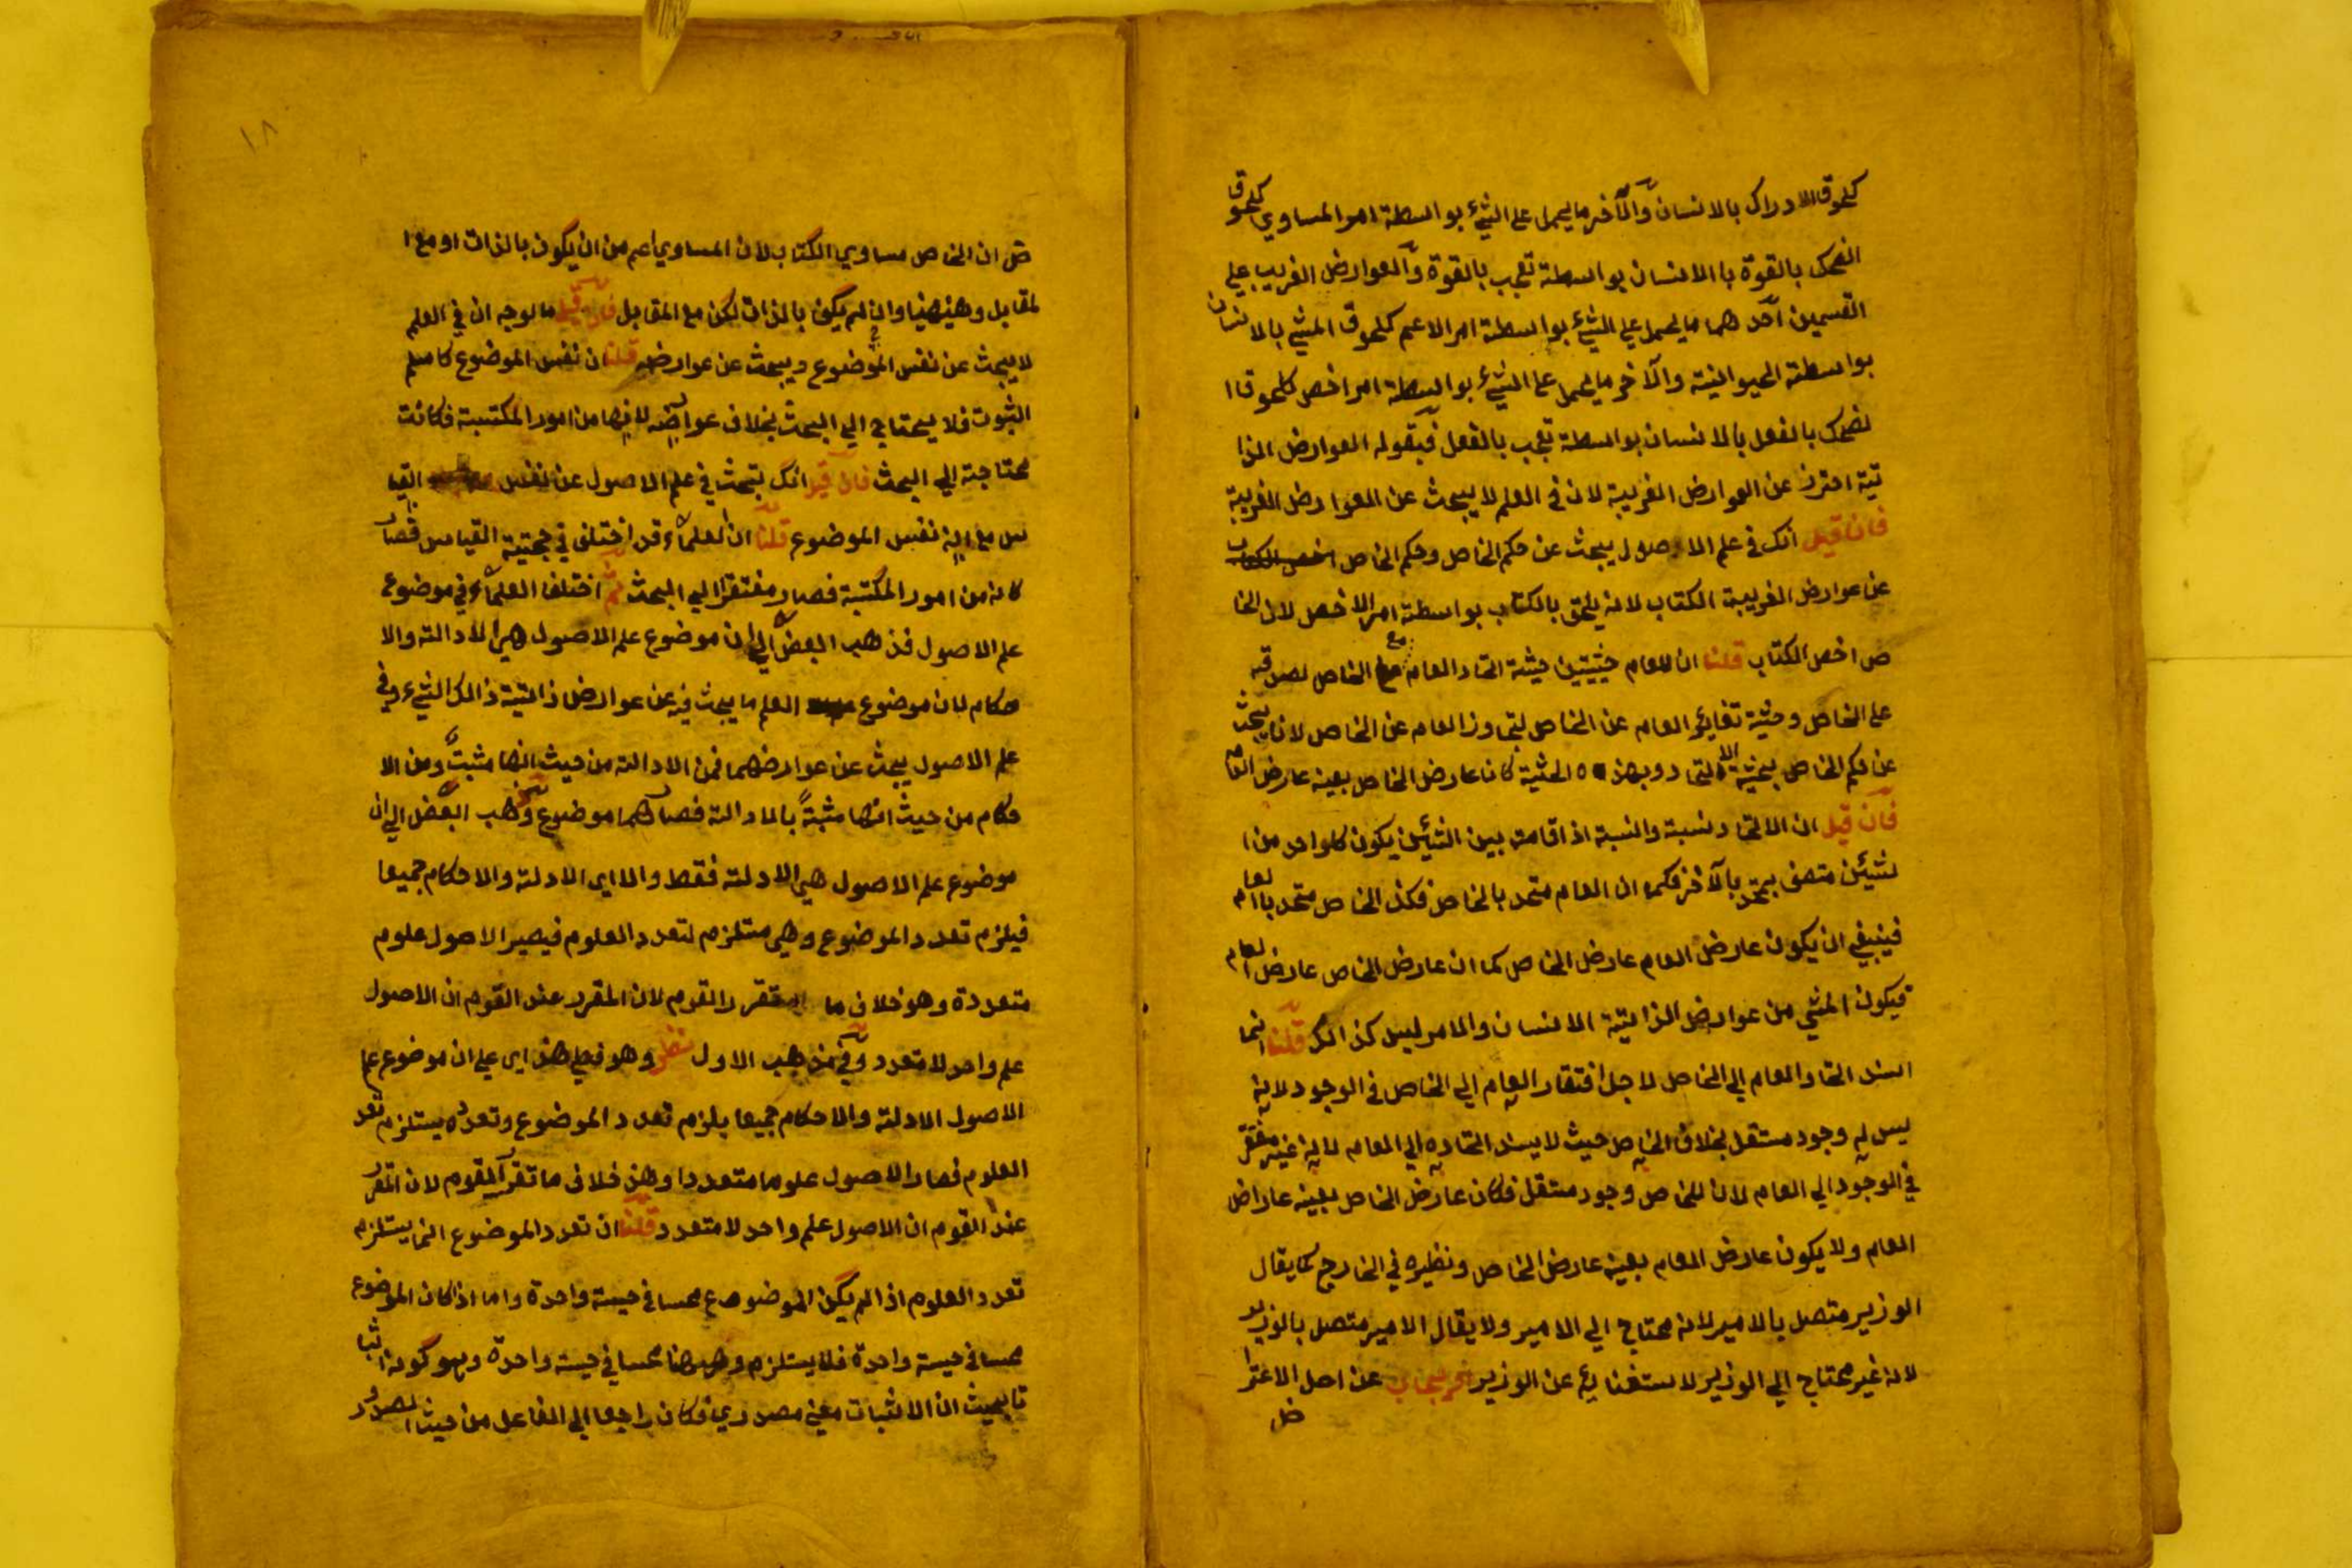 كلحوق الادراك بالانسان والآخر ما يحمل علي الشيء بواسطة امر المساوي كلحوق ا
الضحك بالقوة با الانسان بواسطة تعجب بالقوة والعوارض الغريب علي
القسمين احد هما ما يحمل علي الشيء بواسطة امر الاعم كلحوق المشي بالانسان
بواسطة الحيوانية والآخر ما يحمل علي الشيء بواسطة امر اخص كلحوق ا
لضحك بالفعل بالانسان بواسطة تعجب بالفعل فبقوله العوارض الذا
تية احترز عن العوارض الغريبة لان في العلم لا يبحث عن العوارض الغريبة
فان قيل انك في علم الاصول يبحث عن حكم الخاص وحكم الخاص
عن عوارض الغريبة الكتاب لانه يلحق بالكتاب بواسطة امر الاخص لان الخا
ص اخص الكتاب قلنا ان للعام حيثيتين حيثة اتحاد العام مع الخاص لصدقه
علي الخاص وحيثة تغاير العام عن الخاص لتجاوز العام عن الخاص لانا يبحث
عن حكم الخاص بحيثية الاتحاد وبهذه الحثية كان عارض الخاص بعينه عارض العام
فان قيل ان الاتحاد نسبة والنسبة اذا قامت بين الشيئين يكون كلواحد من ا
لشيئين متصف بمتحد بالآخر فكما ان العام متحد بالخاص فكذ الخاص متحد باالعام
فينبغي ان يكون عارض العام عارض الخاص كما ان عارض الخاص عارض العام
فيكون المشي من عوارض الذاتية الانسان والامر ليس كذالك قلنا انما
اسند اتحاد العام الي الخاص لاجل افتقار العام الي الخاص في الوجود لانه
ليس له وجود مستقل بخلاف الخاص حيث لا يسند اتحاده الي العام لانه غير مفتقر
في الوجود الي العام لان للخاص وجود مستقل فكان عارض الخاص بعينه عارض
العام ولا يكون عارض العام بعينه عارض الخاص ونظيره في الخارج كما يقال
الوزير متصل بالامير لانه محتاج الي الامير ولا يقال الامير متصل بالوزير
لانه غير محتاج الي الوزير لاستغنايه عن الوزير ثم يجاب عن اصل الاعترا
ض
١٨
ض ان الخاص مساوي الكتاب لان المساوي اعم من ان يكون بالذات او مع ا
لمقابل وههنا وان لم يكن بالذات لكن مع المقابل فان قيل ما لوجه ان في العلم
لا يبحث عن نفس الموضوع ويبحث عن عوارضه قلنا ان نفس الموضوع كامسلم
الثبوت فلا يحتاج الي البحث بخلاف عوارضه لانها من امور المكتسبة فكانت
محتاجة الي البحث فان قيل انك تبحث في علم الاصول عن نفس القيا
س مع انه نفس الموضوع قلنا ان العلماء قد اختلف في حجية القياس فصار
كانه من امور المكتسبة فصار مفتقرا الي البحث ثم اختلفا العلماء في موضوع
علم الاصول فذهب البعض الي ان موضوع علم الاصول هي الادالته والا
حكام لان موضوع العلم ما يبحث فيه عن عوارض ذاتية ذالك الشيء وفي
علم الاصول يبحث عن عوارضهما فمن الادالته من حيث انها مثبت ومن الا
حكام من حيث انها مثبتة بالادالته فصار هما موضوع وذهب البعض الي ان
موضوع علم الاصول هي الادلته فقط والا اي الادلته والاحكام جميعا
فيلزم تعدد الموضوع وهي مستلزم لتعدد العلوم فيصير الاصول علوم
متعددة وهو خلاف ما تقرر القوم لان المقرر عند القوم ان الاصول
علم واحد لا متعدد وفي مذهب الاول نظر وهو فعلي هذ اي علي ان موضوع علم
الاصول الادلته والاحكام جميعا يلزم تعدد الموضوع وتعدده يستلزم تعدد
العلوم فصار الاصول علوما متعددا وهذ خلاف ما تقرر القوم لان المقرر
عند القوم ان الاصول علم واحد لا متعدد قلنا ان تعدد الموضوع انما يستلزم
تعدد العلوم اذا لم يكن الموضوع في حيسة واحدة واما اذا كان الموضوع
في حيسة واحدة فلا يستلزم وههنا في حيسة واحدة وهو كونه اثبا
تا بحيث ان الاثبات معني مصدري فكان راجعا الي الفاعل من حيث الصدور